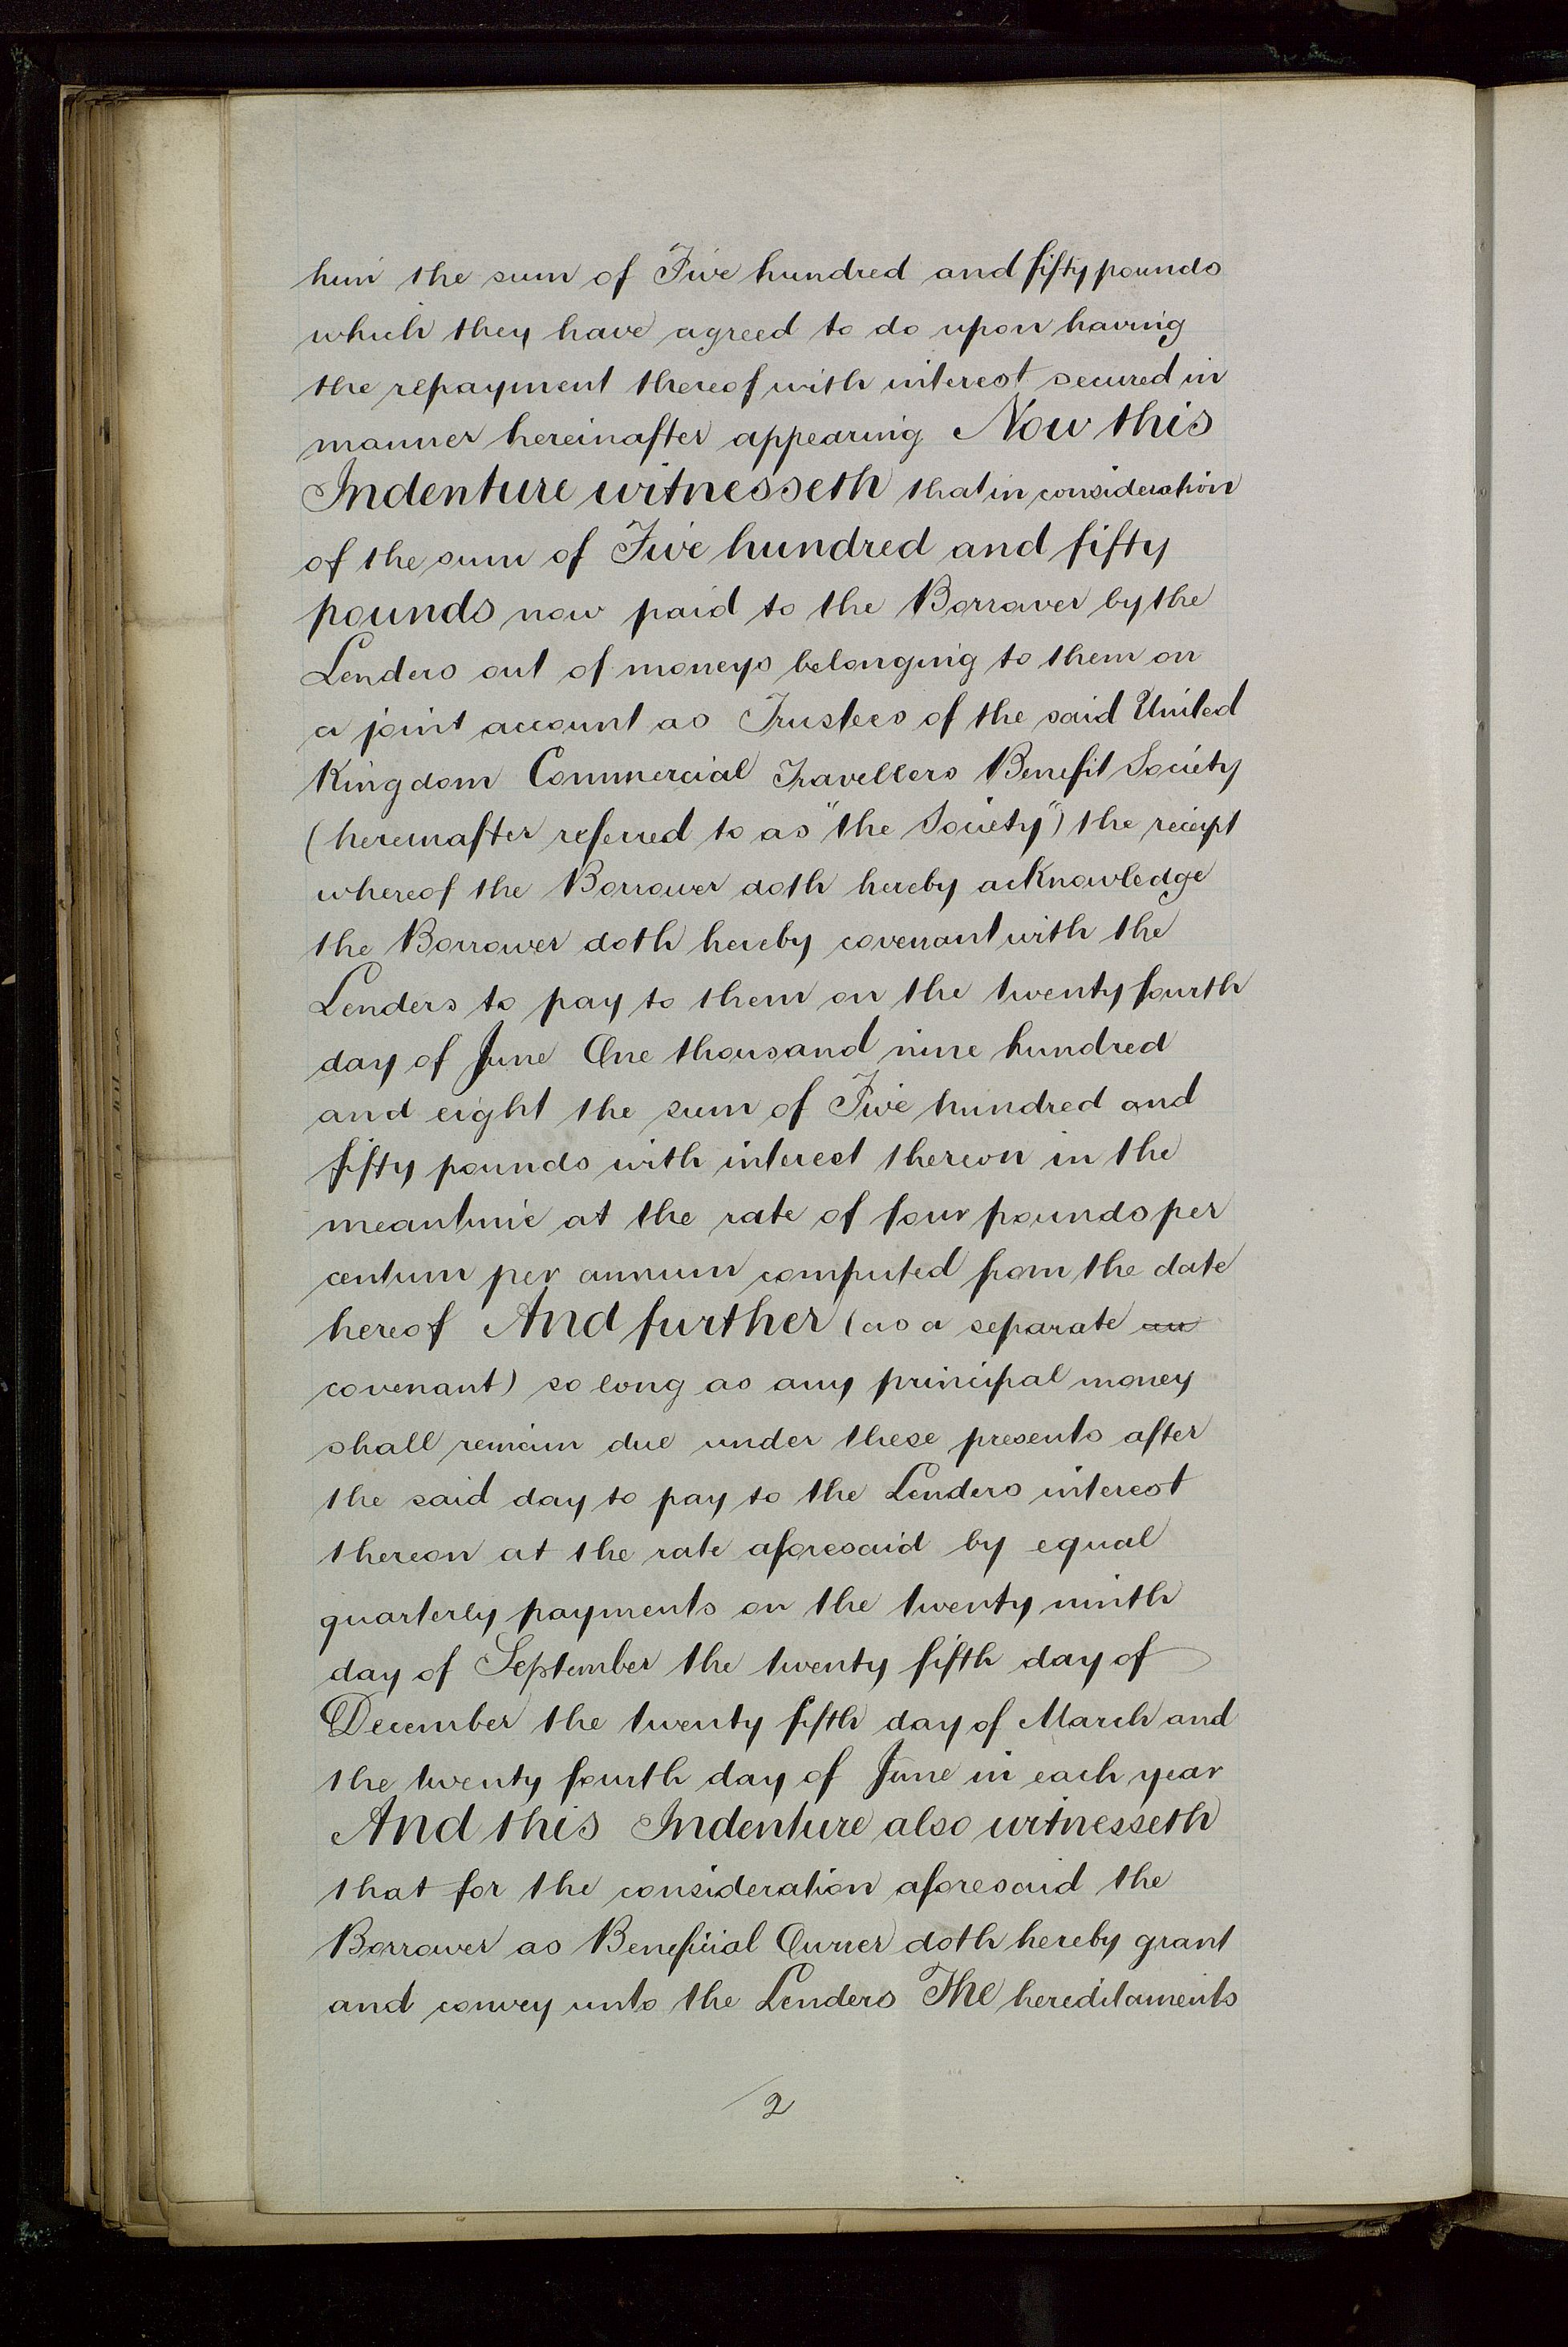 him the sum of Five hundred and fifty pounds
which they have agreed to do upon having
the repayment thereof with interest secured in
manner hereinafter appearing Now this
Indenture witnesseth that in consideration
of the sum of Five hundred and fifty
pounds now paid to the Borrower by the
Lenders out of moneys belonging to them on
a joint account as Trustees of the said United
Kingdom Commercial Travellers Benefit Society
(hereinafter referred to as "the Society") the receipt
whereof the Borrower doth hereby acknowledge
the Borrower doth hereby covenant with the
Lenders to pay to them on the twenty fourth
day of June One thousand nine hundred
and eight the sum of Five hundred and
fifty pounds with interest thereon in the
meantime at the rate of four pounds per
centum per annum computed from the date
hereof And further (as a separate
covenant) so long as any principal money
shall remain due under these presents after
the said day to pay to the Lenders interest
thereon at the rate aforesaid by equal
quarterly payments on the twenty ninth
day of September the twenty fifth day of
December the twenty fifth day of March and
the twenty fourth day of June in each year
And this Indenture also witnesseth
that for the consideration aforesaid the
Borrower as Beneficial Owner doth hereby grant
and convey unto the Lenders The hereditaments
2